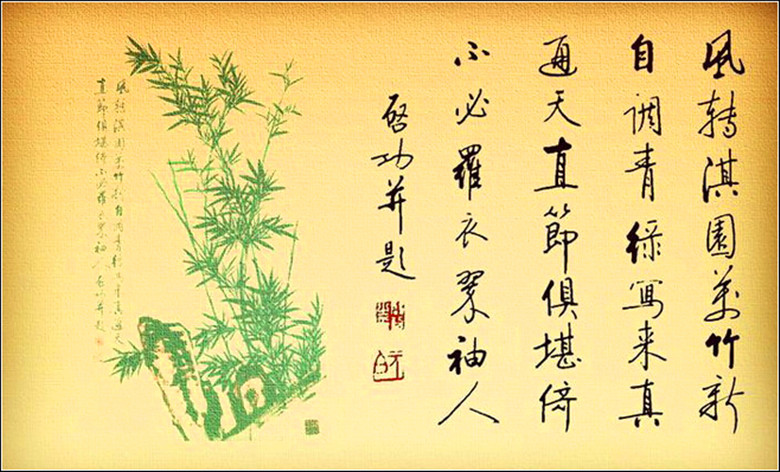 風轉淇園萬竹新
自調青綠寫來真
通天直節俱堪倚
不必羅衣翠袖人
啓功並題
風轉淇園萬竹新自調青綠寫來真通天
直節俱堪倚不必羅衣翠袖人啓功並題